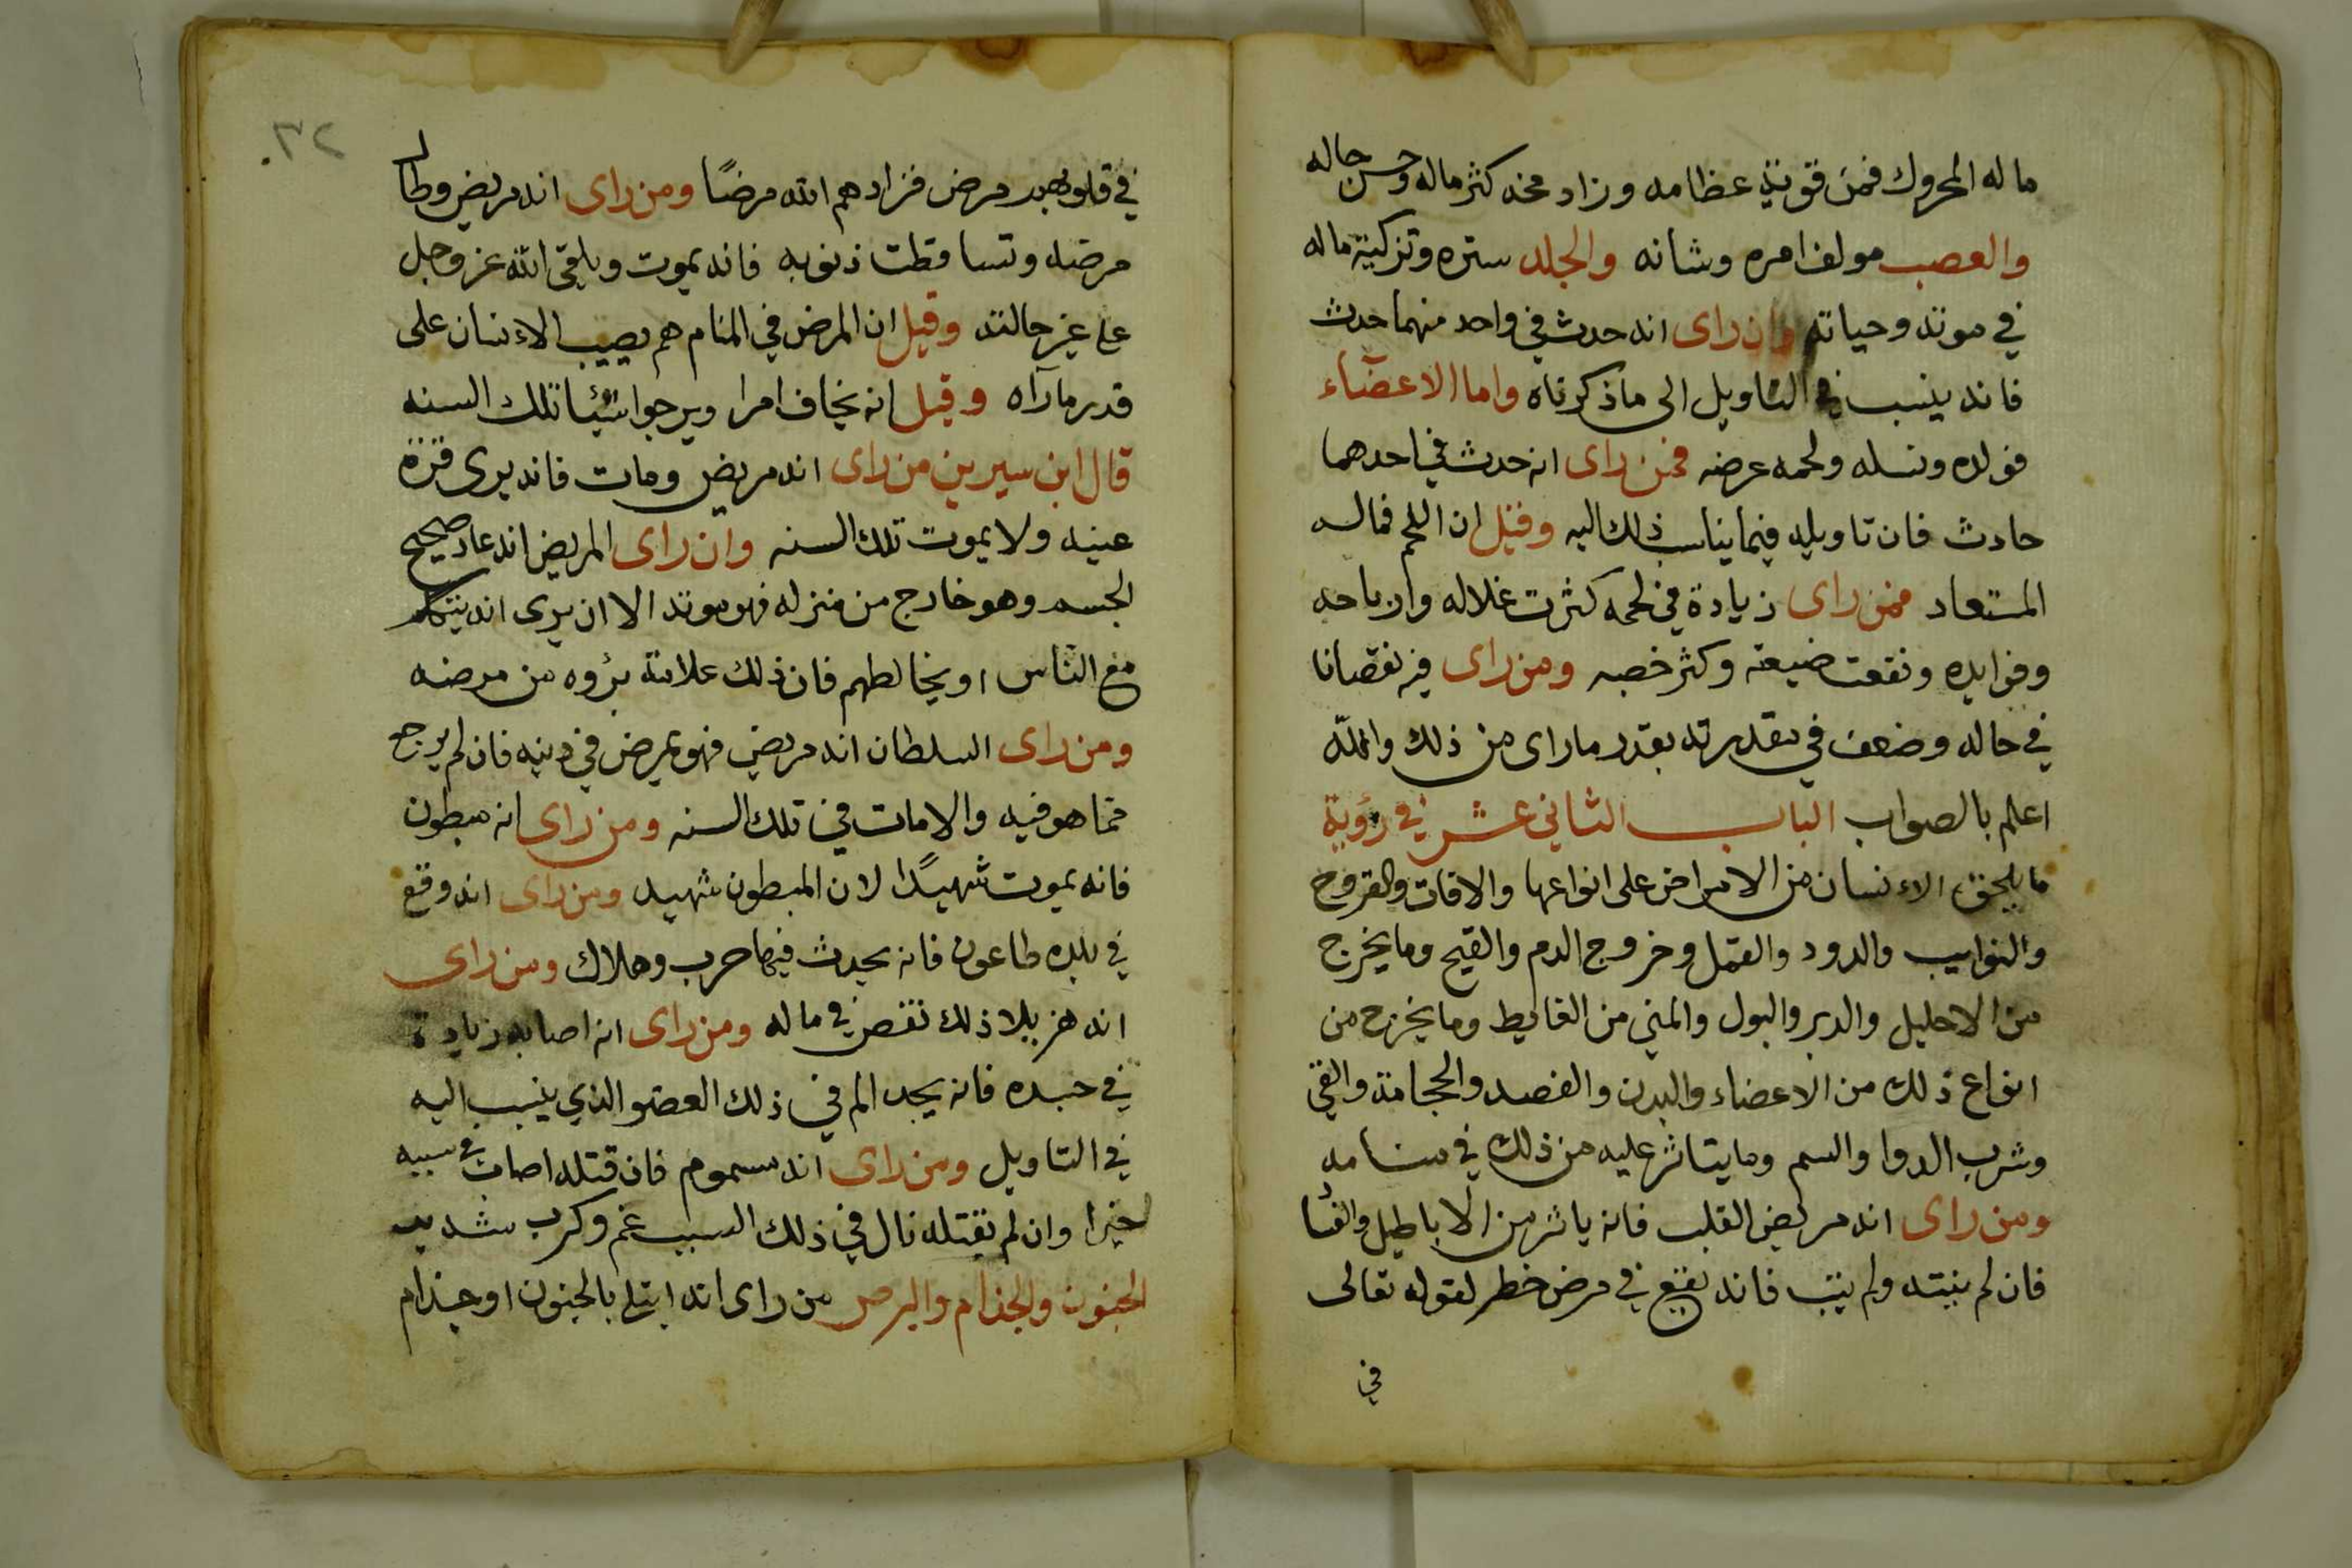 ماله المحروك فمن قويت عظامه وزاد مخه كثر ماله وحسن حاله
والعصب مولف امره وشانه والجلد ستره وتزكية ماله
في موته وحياته وان راى انه حدث في واحد منهما حدث
فانه ينسب في التاويل الى ما ذكرناه واما الاعضاء
فولده ونسله ولحمه عرضه فمن راى انه حدث في احدهما
حادث فان تاويله فيما يناسب ذلك اليه وقيل ان اللحم فماله
المستعاد فمن راى زيادة في لحمه كثرت غلاله وارباحه
وفوايده ونفعت ضيعته وكثر خصبه ومن راى فيه نقصانا
في حاله وضعف في مقدرته بقدر ما راى من ذلك والله
اعلم بالصواب الباب الثاني عشر في رؤية
ما يلحق الانسان من الامراض على انواعها والافات والقروح
والنوايب والدود والقمل وخروج الدم والقيح وما يخرج
من الاحليل والدبر والبول والمني من الغايط وما يخرج من
انواع ذلك من الاعضاء والبدن والفصد والحجامة والقي
وشرب الدوا والسم وما يتاثر عليه من ذلك في منامه
ومن راى انه مريض القلب فانه ياثر من الاباطيل والفسا
فان لم ينته ولم يتب فانه يقع في مرض خطر لقوله تعالى
في
٣٢
في قلوبهم مرض فزادهم الله مرضًا ومن راى انه مريض وطال
مرضه وتساقطت ذنوبه فانه يموت ويلقى الله عز وجل
على غير حالته وقيل ان المرض في المنام هم يصيب الانسان على
قدر ما رآه وقيل انه يخاف امرا ويرجوا شيئا تلك السنه
قال ابن سيرين من راى انه مريض ومات فانه يرى قرة
عينه ولا يموت تلك السنه وان راى المريض انه عاد صحيح
الجسم وهو خارج من منزله فهو موته الا ان يرى انه يتكلم
مع الناس او يخالطهم فان ذلك علامة برؤه من مرضه
ومن راى السلطان انه مريض فهو يمرض في دينه فان لم يرجع
مما هو فيه والا مات في تلك السنه ومن راى انه مبطون
فانه يموت شهيدًا لان المبطون شهيد ومن راى انه وقع
في بلده طاعون فانه يحدث فيها حرب وهلاك ومن راى
انه هزيلا ذلك نقص في ماله ومن راى انه اصابه زيادة
في جسده فانه يجد الم في ذلك العضو الذي ينسب اليه
في التاويل ومن راى انه مسموم فان قتله اصاب في سببه
خيرا وان لم يقتله نال في ذلك السبب غم وكرب شديد
الجنون والجذام والبرص من راى انه ابتلى بالجنون او جذام